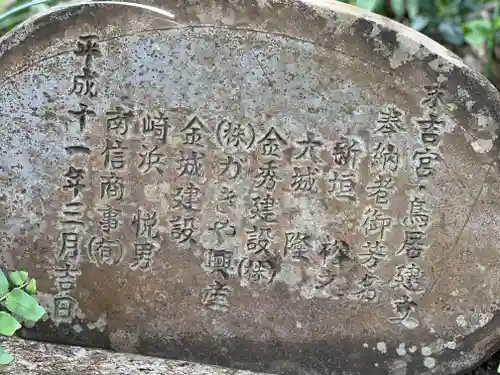 弁吉宮・鳥居建立
奉納者御芳名
新垣 裕之
大城 隆
金秀建設(株)
(株)ガキヤ興産
金城建設
崎浜 悦男
南信商事(有)
平成十一年三月吉日